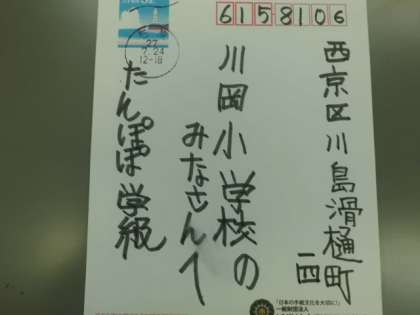 6158106
西京区川島滑樋町
一四
川岡小学校の
みなさんへ
たんぽぽ学級
27
7.24
12-18
「日本の手紙文化を大切に!」
一般財団法人